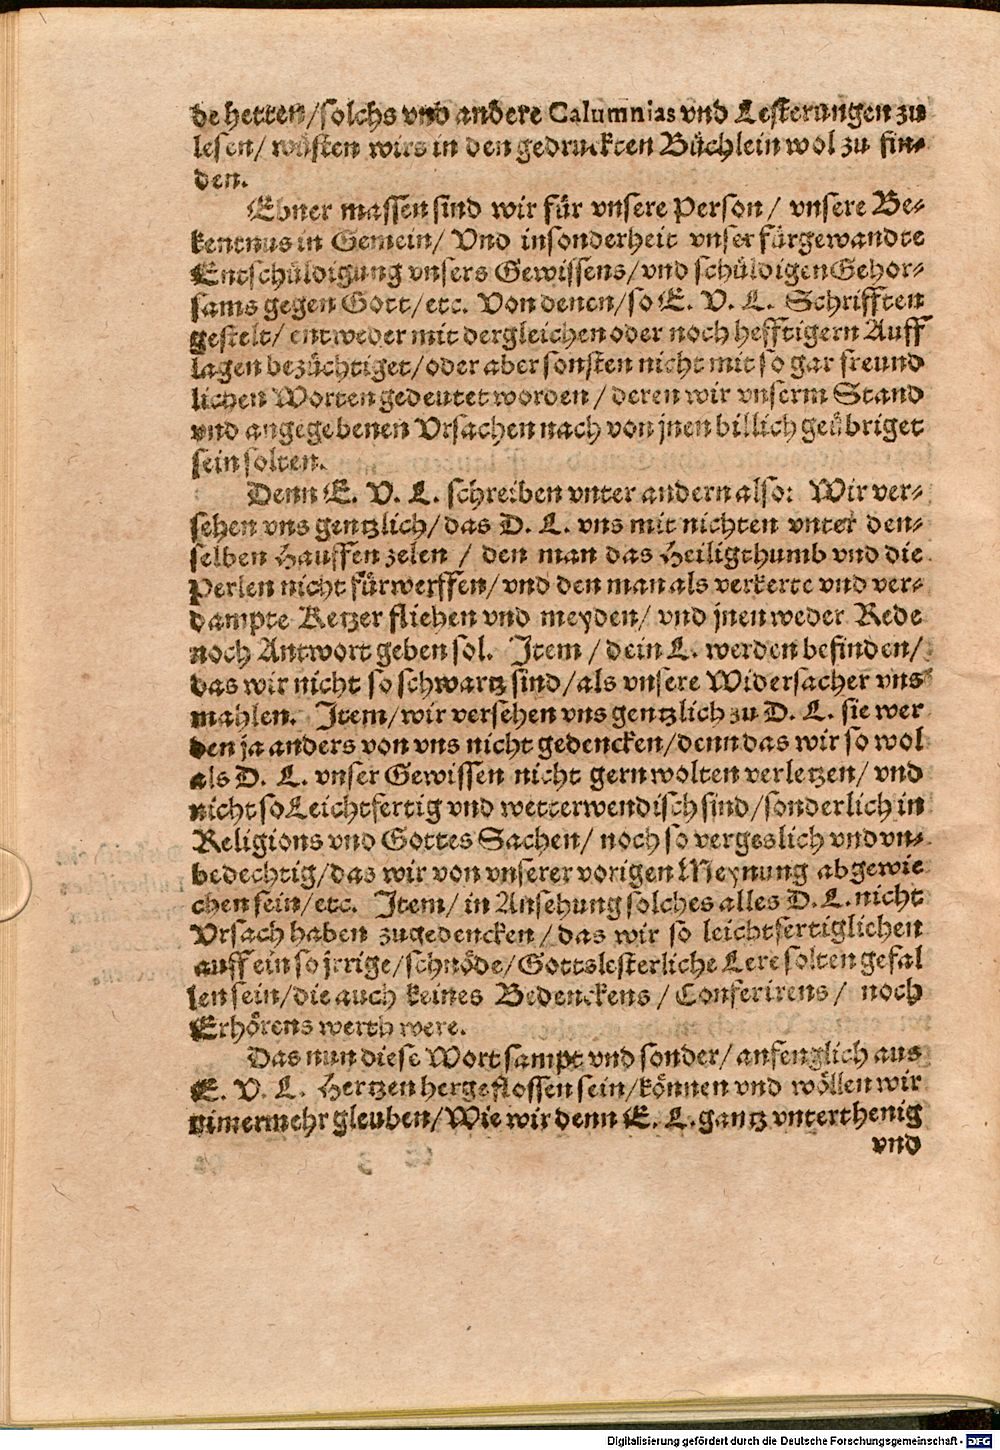 de hetten/solchs vnd andere Calumnias vnd Lesterungen zu
lesen/ wüsten wirs in den gedruckten Büchlein wol zu fin-
den.
Ebner massen sind wir für vnsere Person/ vnsere Be-
kentnus in Gemein/ Vnd insonderheit vnser fürgewandte
Entschüldigung vnsers Gewissens/vnd schüldigen Gehor-
sams gegen Gott/etc. Von denen/so E. V. L. Schrifften
gestelt/ entweder mit dergleichen oder noch hefftigern Auff
lagen bezüchtiget/oder aber sonsten nicht mit so gar freund
lichen Worten gedeutet worden/ deren wir vnserm Stand
vnd angegebenen Vrsachen nach von jnen billich geübriget
sein solten.
Denn E. V. L. schreiben vnter andern also: Wir ver-
sehen vns gentzlich/das D. L. vns mit nichten vnter den-
selben Hauffen zelen / den man das Heiligthumb vnd die
Perlen nicht fürwerffen/vnd den man als verkerte vnd ver-
dampte Ketzer fliehen vnd meyden/ vnd jnen weder Rede
noch Antwort geben sol. Item/dein L. werden befinden/
das wir nicht so schwartz sind/als vnsere Widersacher vns
mahlen. Item/wir versehen vns gentzlich zu D. L. sie wer
den ja anders von vns nicht gedencken/denn das wir so wol
als D. L. vnser Gewissen nicht gern wolten verletzen/ vnd
nicht so Leichtfertig vnd wetterwendisch sind/sonderlich in
Religions vnd Gottes Sachen/ noch so vergeslich vnd vn-
bedechtig/das wir von vnserer vorigen Meynung abgewie
chen sein/etc. Item/ in Ansehung solches alles D. L. nicht
Vrsach haben zugedencken/das wir so leichtfertiglichen
auff ein so jrrige/schnöde/Gottslesterliche Lere solten gefal
len sein/die auch keines Bedenckens / Conferirens/ noch
Erhörens werth were.
Das nun diese Wort sampt vnd sonder/ anfenglich aus
E. V. L. Hertzen hergeflossen sein/können vnd wöllen wir
nimermehr gleuben/Wie wir denn E. L. gantz vnterthenig
vnd
Digitalisierung gefördert durch die Deutsche Forschungsgemeinschaft - DFG